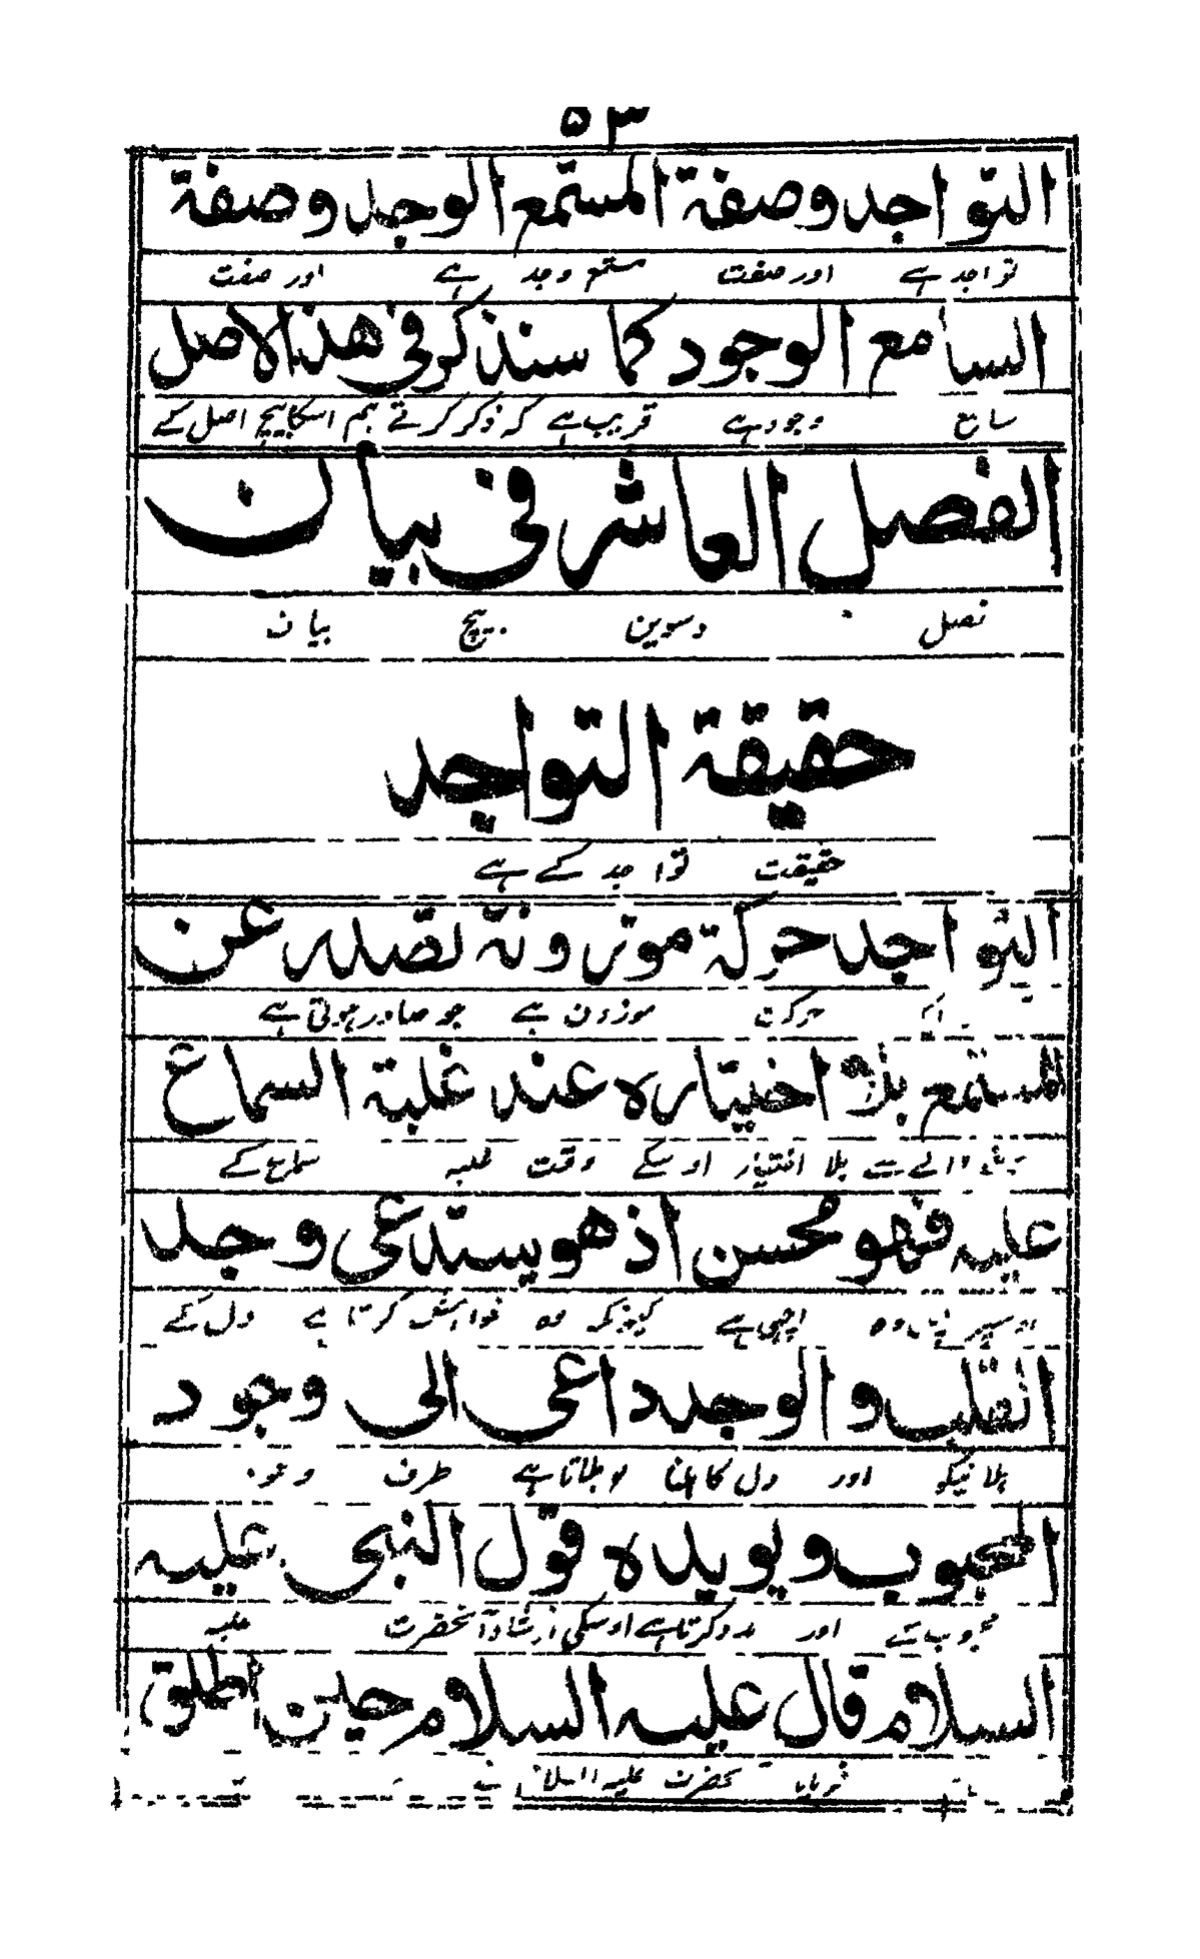 ۵۳
التواجد وصفة المستمع الوجد وصفة
تواجد ہے اور صفت مستمع وجد ہے اور صفت
السامع الوجود کما سنذکر فی هذا الاصل
سامع وجود ہے قریب ہے کہ ذکر کرتے ہم اسکا بیچ اصل کے
الفصل العاشر فی بیان
فصل دسوین بیچ بیان
حقیقة التواجد
حقیقت تواجد کے ہے
التواجد حرکة موزونة تصدر عن
حرکت موزون ہے جو صادر ہوتی ہے
المستمع بلا اختیاره عند غلبة السماع
والے سے بلا اختیار اوسکے وقت غلبہ سماع کے
علیه فهو محسن اذ هو یستدعی وجد
پس وہ اچھی ہے کیونکہ وہ خواہش کرتا ہے دل کے
القلب والوجد داعی الی وجود
اور دل کا بلاتا ہے طرف وجود
المحبوب ویویده قول النبی علیه
محبوب کے اور مدد کرتا ہے اوسکی ارشاد آنحضرت علیہ
السلام قال علیه السلام حین اطلق
فرمایا حضرت علیہ السلام نے